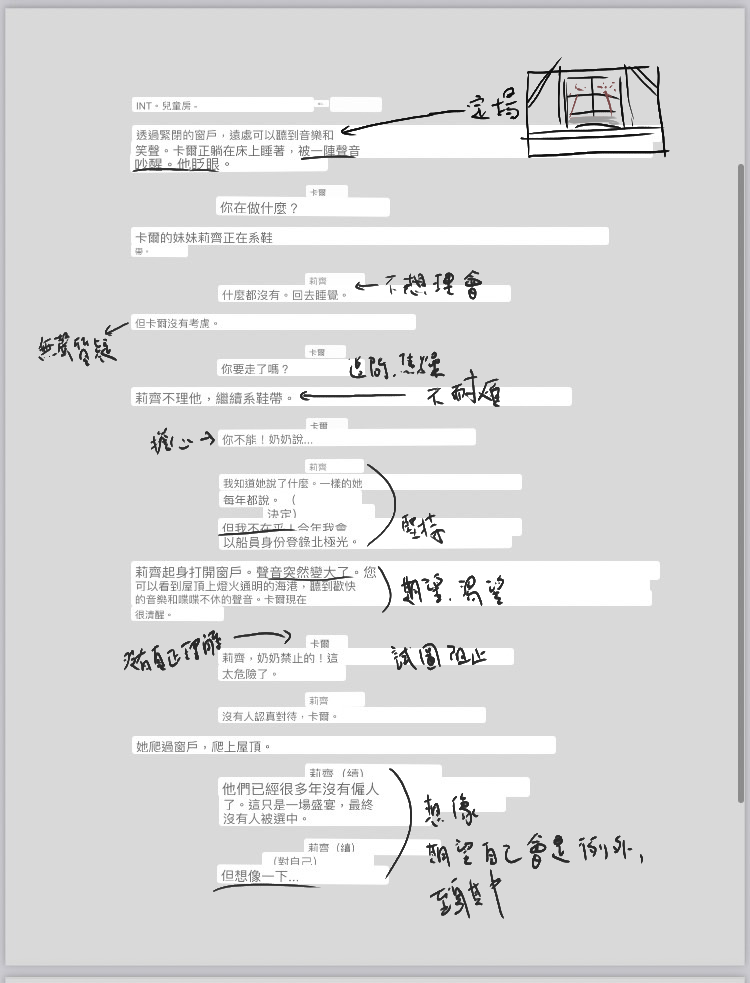 INT。兒童房 -
定場
透過緊閉的窗戶，遠處可以聽到音樂和
笑聲。卡爾正躺在床上睡著，被一陣聲音
吵醒。他眨眼。
卡爾
你在做什麼？
卡爾的妹妹莉齊正在系鞋
帶。
莉齊
什麼都沒有。回去睡覺。
不想理會
但卡爾沒有考慮。
無聲質疑
卡爾
你要走了嗎？
追問.焦燥
莉齊不理他，繼續系鞋帶。
不耐煩
卡爾
擔心
你不能！奶奶說...
莉齊
我知道她說了什麼。一樣的她
每年都說。（
決定）
但我不在乎！今年我會
以船員身份登錄北極光。
堅持
莉齊起身打開窗戶。聲音突然變大了。您
可以看到屋頂上燈火通明的海港，聽到歡快
的音樂和喋喋不休的聲音。卡爾現在
很清醒。
期望.渴望
沒有真正理解
卡爾
莉齊，奶奶禁止的！這
太危險了。
試圖阻止
莉齊
沒有人認真對待，卡爾。
她爬過窗戶，爬上屋頂。
莉齊（續）
他們已經很多年沒有僱人
了。這只是一場盛宴，最終
沒有人被選中。
想像
期望自己會是例外，
莉齊（續）
（對自己）
但想像一下...